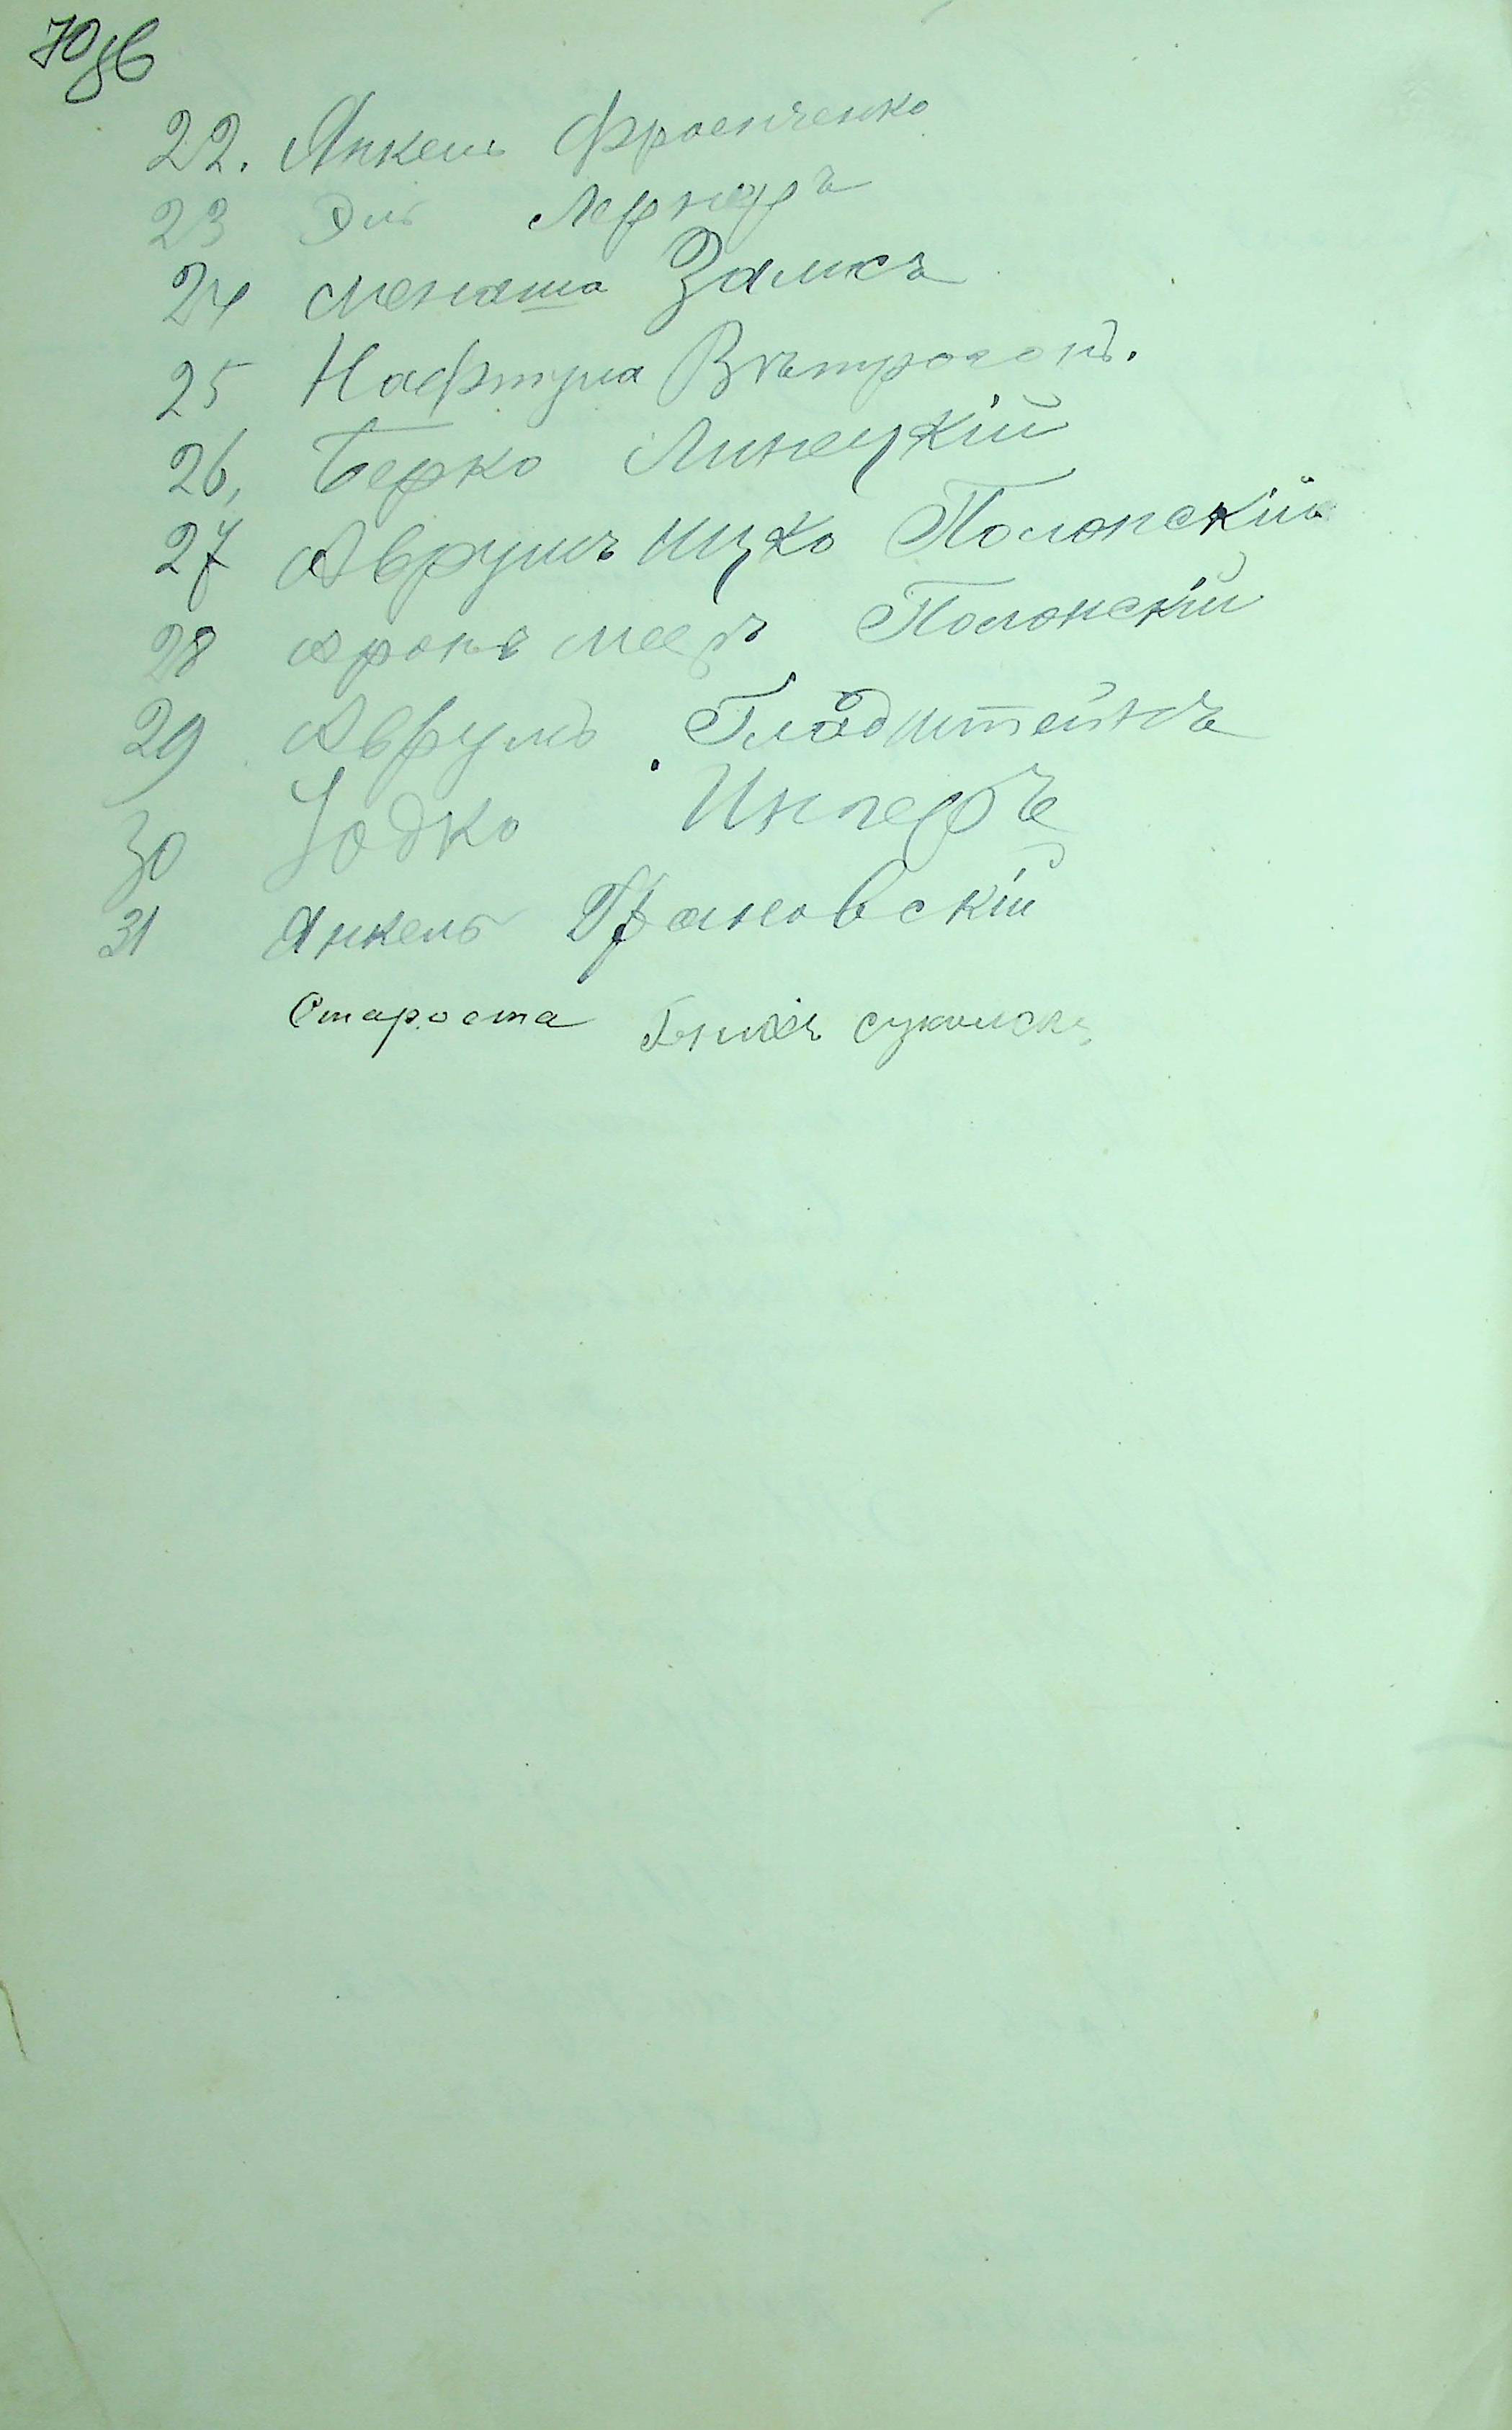 70 об
22. Янкель Фроенченко
23 Эль Лернеръ
24 Менаша Замсъ
25 Нафтула Вѣтрогонъ.
26, Берко Линецкій
27 Аврумъ Ицко Полонскій
28 Аронъ Мееръ Полонскій
29 Аврумъ Гладштейнъ
30 Іодко
31 Янкель Грановскій
Староста